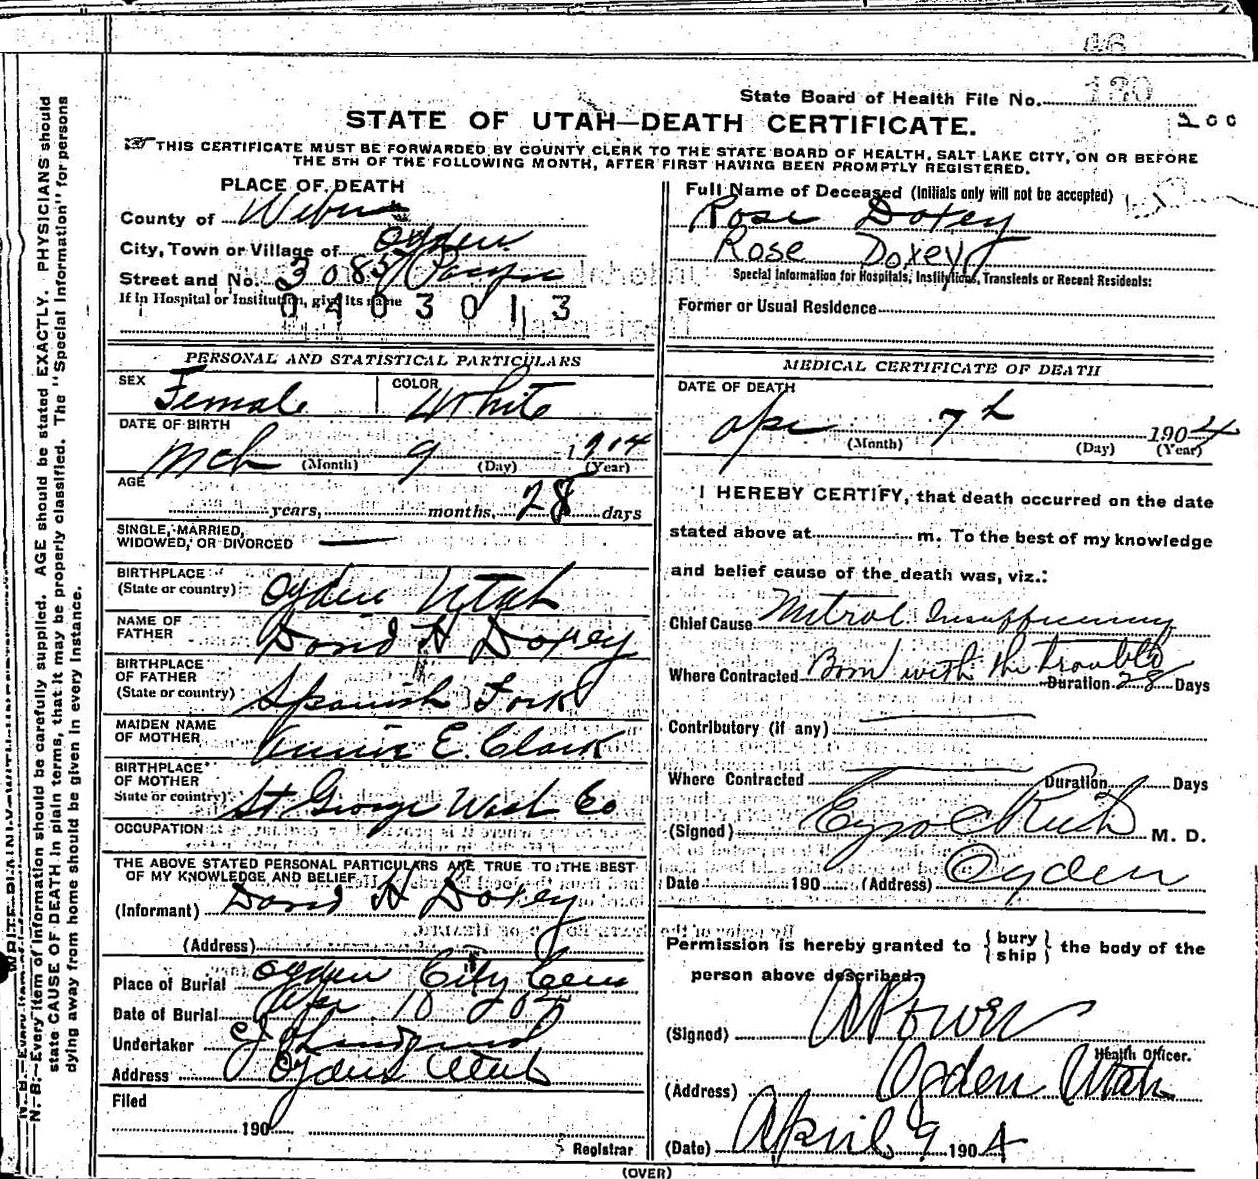 46
State Board of Health File No. 130
200
STATE OF UTAH—DEATH CERTIFICATE.
THIS CERTIFICATE MUST BE FORWARDED BY COUNTY CLERK TO THE STATE BOARD OF HEALTH, SALT LAKE CITY, ON OR BEFORE
THE 5TH OF THE FOLLOWING MONTH, AFTER FIRST HAVING BEEN PROMPTLY REGISTERED.
PLACE OF DEATH
County of Weber
City, Town or Village of Ogden
Street and No. 3085
If in Hospital or Institution, give its name
0403013
Full Name of Deceased (Initials only will not be accepted)
Rose Doxey
Rose Doxey
Special Information for Hospitals, Institutions, Transients or Recent Residents:
Former or Usual Residence
PERSONAL AND STATISTICAL PARTICULARS
SEX Female COLOR White
DATE OF BIRTH
Mch (Month) 9 (Day) 1904 (Year)
AGE
years, months, 28 days
SINGLE, MARRIED,
WIDOWED, OR DIVORCED —
BIRTHPLACE
(State or country) Ogden Utah
NAME OF
FATHER David H Doxey
BIRTHPLACE
OF FATHER
(State or country) Spanish Fork
MAIDEN NAME
OF MOTHER Annie E. Clark
BIRTHPLACE
OF MOTHER
State or country) St George Wash Co
OCCUPATION
THE ABOVE STATED PERSONAL PARTICULARS ARE TRUE TO THE BEST
OF MY KNOWLEDGE AND BELIEF
(Informant) David H Doxey
(Address)
Place of Burial Ogden City Cem
Date of Burial Apr 10
Undertaker
Address Ogden Utah
Filed
190
Registrar
MEDICAL CERTIFICATE OF DEATH
DATE OF DEATH
Apr (Month) 7th (Day) 1904 (Year)
I HEREBY CERTIFY, that death occurred on the date
stated above at m. To the best of my knowledge
and belief cause of the death was, viz.:
Chief Cause Mitral Insufficiency
Where Contracted Born with the trouble Duration 28 Days
Contributory (if any) —
Where Contracted — Duration Days
(Signed) Ezra C Rich M. D.
Date 190 (Address) Ogden
Permission is hereby granted to { bury ship } the body of the
person above described.
(Signed) A Power
Health Officer.
(Address) Ogden Utah
(Date) April 9 1904
(OVER)
N. B.—Every item of information should be carefully supplied. AGE should be stated EXACTLY. PHYSICIANS should
state CAUSE OF DEATH in plain terms, that it may be properly classified. The "Special Information" for persons
dying away from home should be given in every instance.